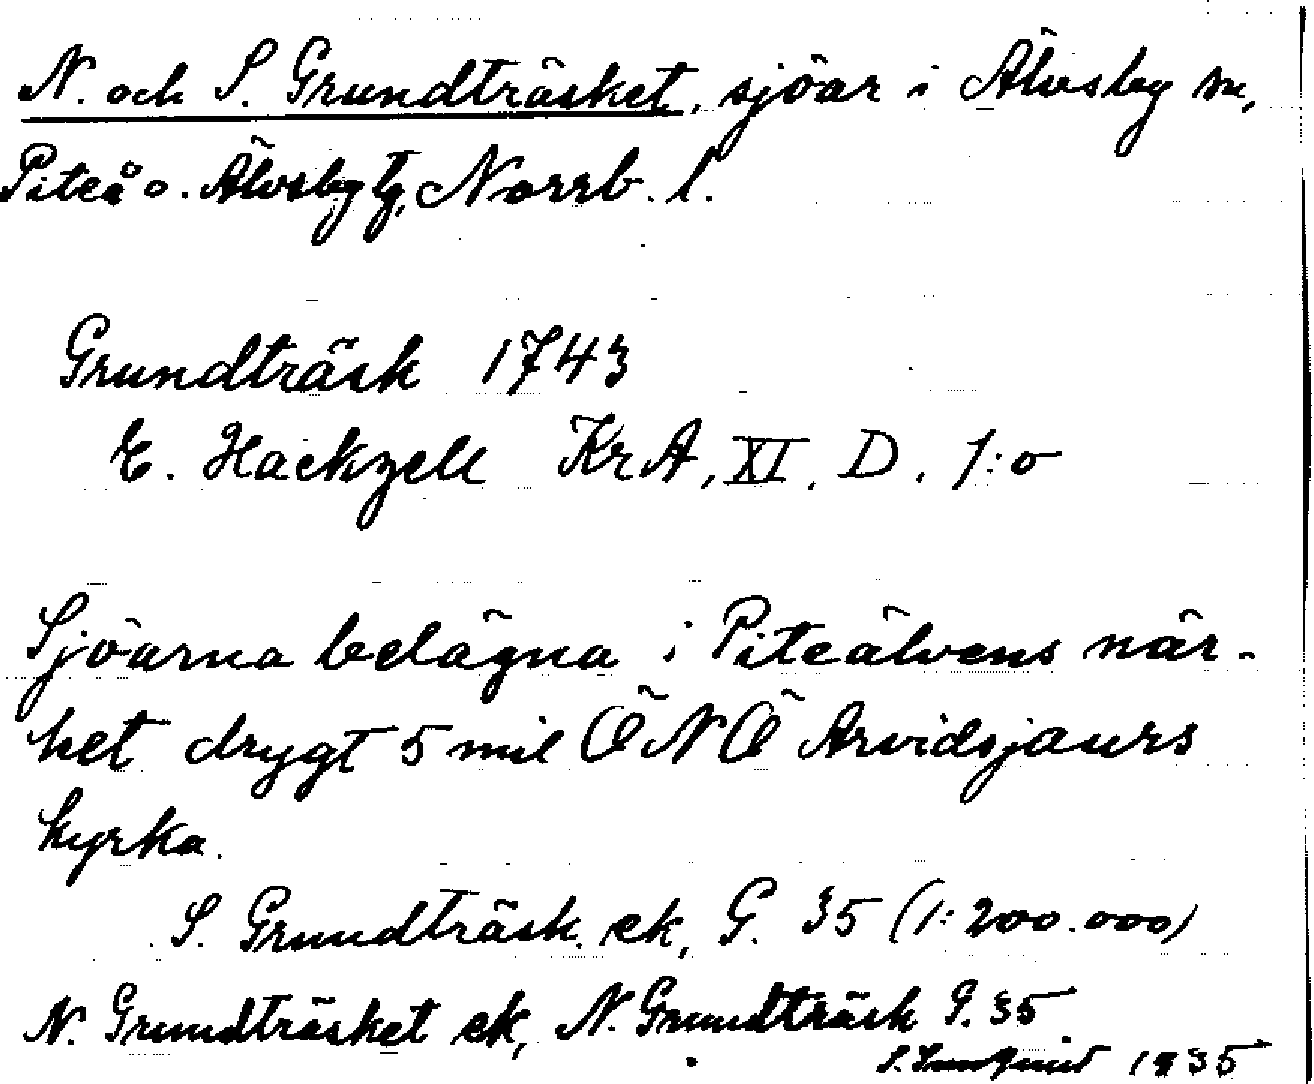 N. och S. Grundträsket, sjöar i Älvsby sn,
Piteå o. Älvsby tg, Norrb. l.
Grundträsk 1743
E. Hackzell KrA, XI, D, 1:o
Sjöarna belägna i Piteälvens när-
het drygt 5 mil ÖNÖ Arvidsjaurs
kyrka.
S. Grundträsk ek, G. 35 (1:200.000)
N. Grundträsket ek, N. Grundträsk G. 35
1935